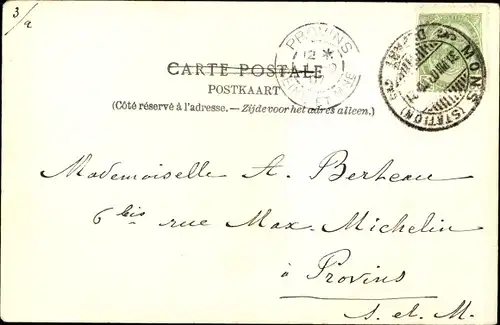 3/a
PROVINS
12 *
ET MNE
CARTE POSTALE
POSTKAART
(Côté réservé à l'adresse. — Zijde voor het adres alleen.)
MONS
(STATION)
DEPART
Mademoiselle A. Berteau
6 bis rue Max. Michelin
à Provins
S. et M.